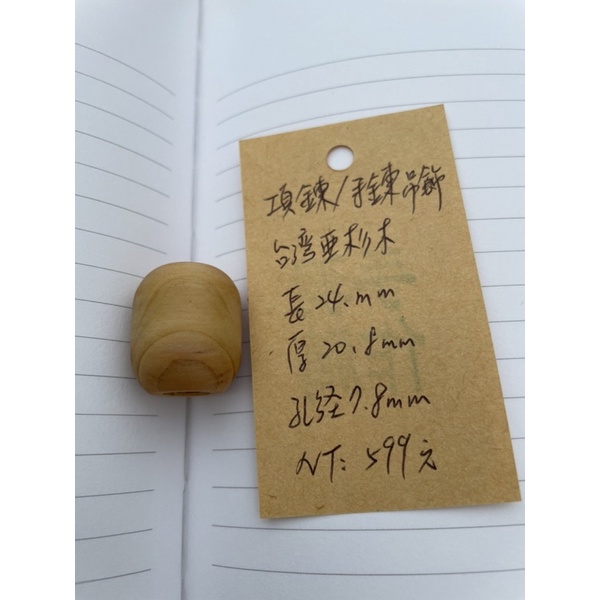 項鍊/手鍊吊飾
台湾亜杉木
長24.mm
厚20.8mm
孔径7.8mm
NT: 599元